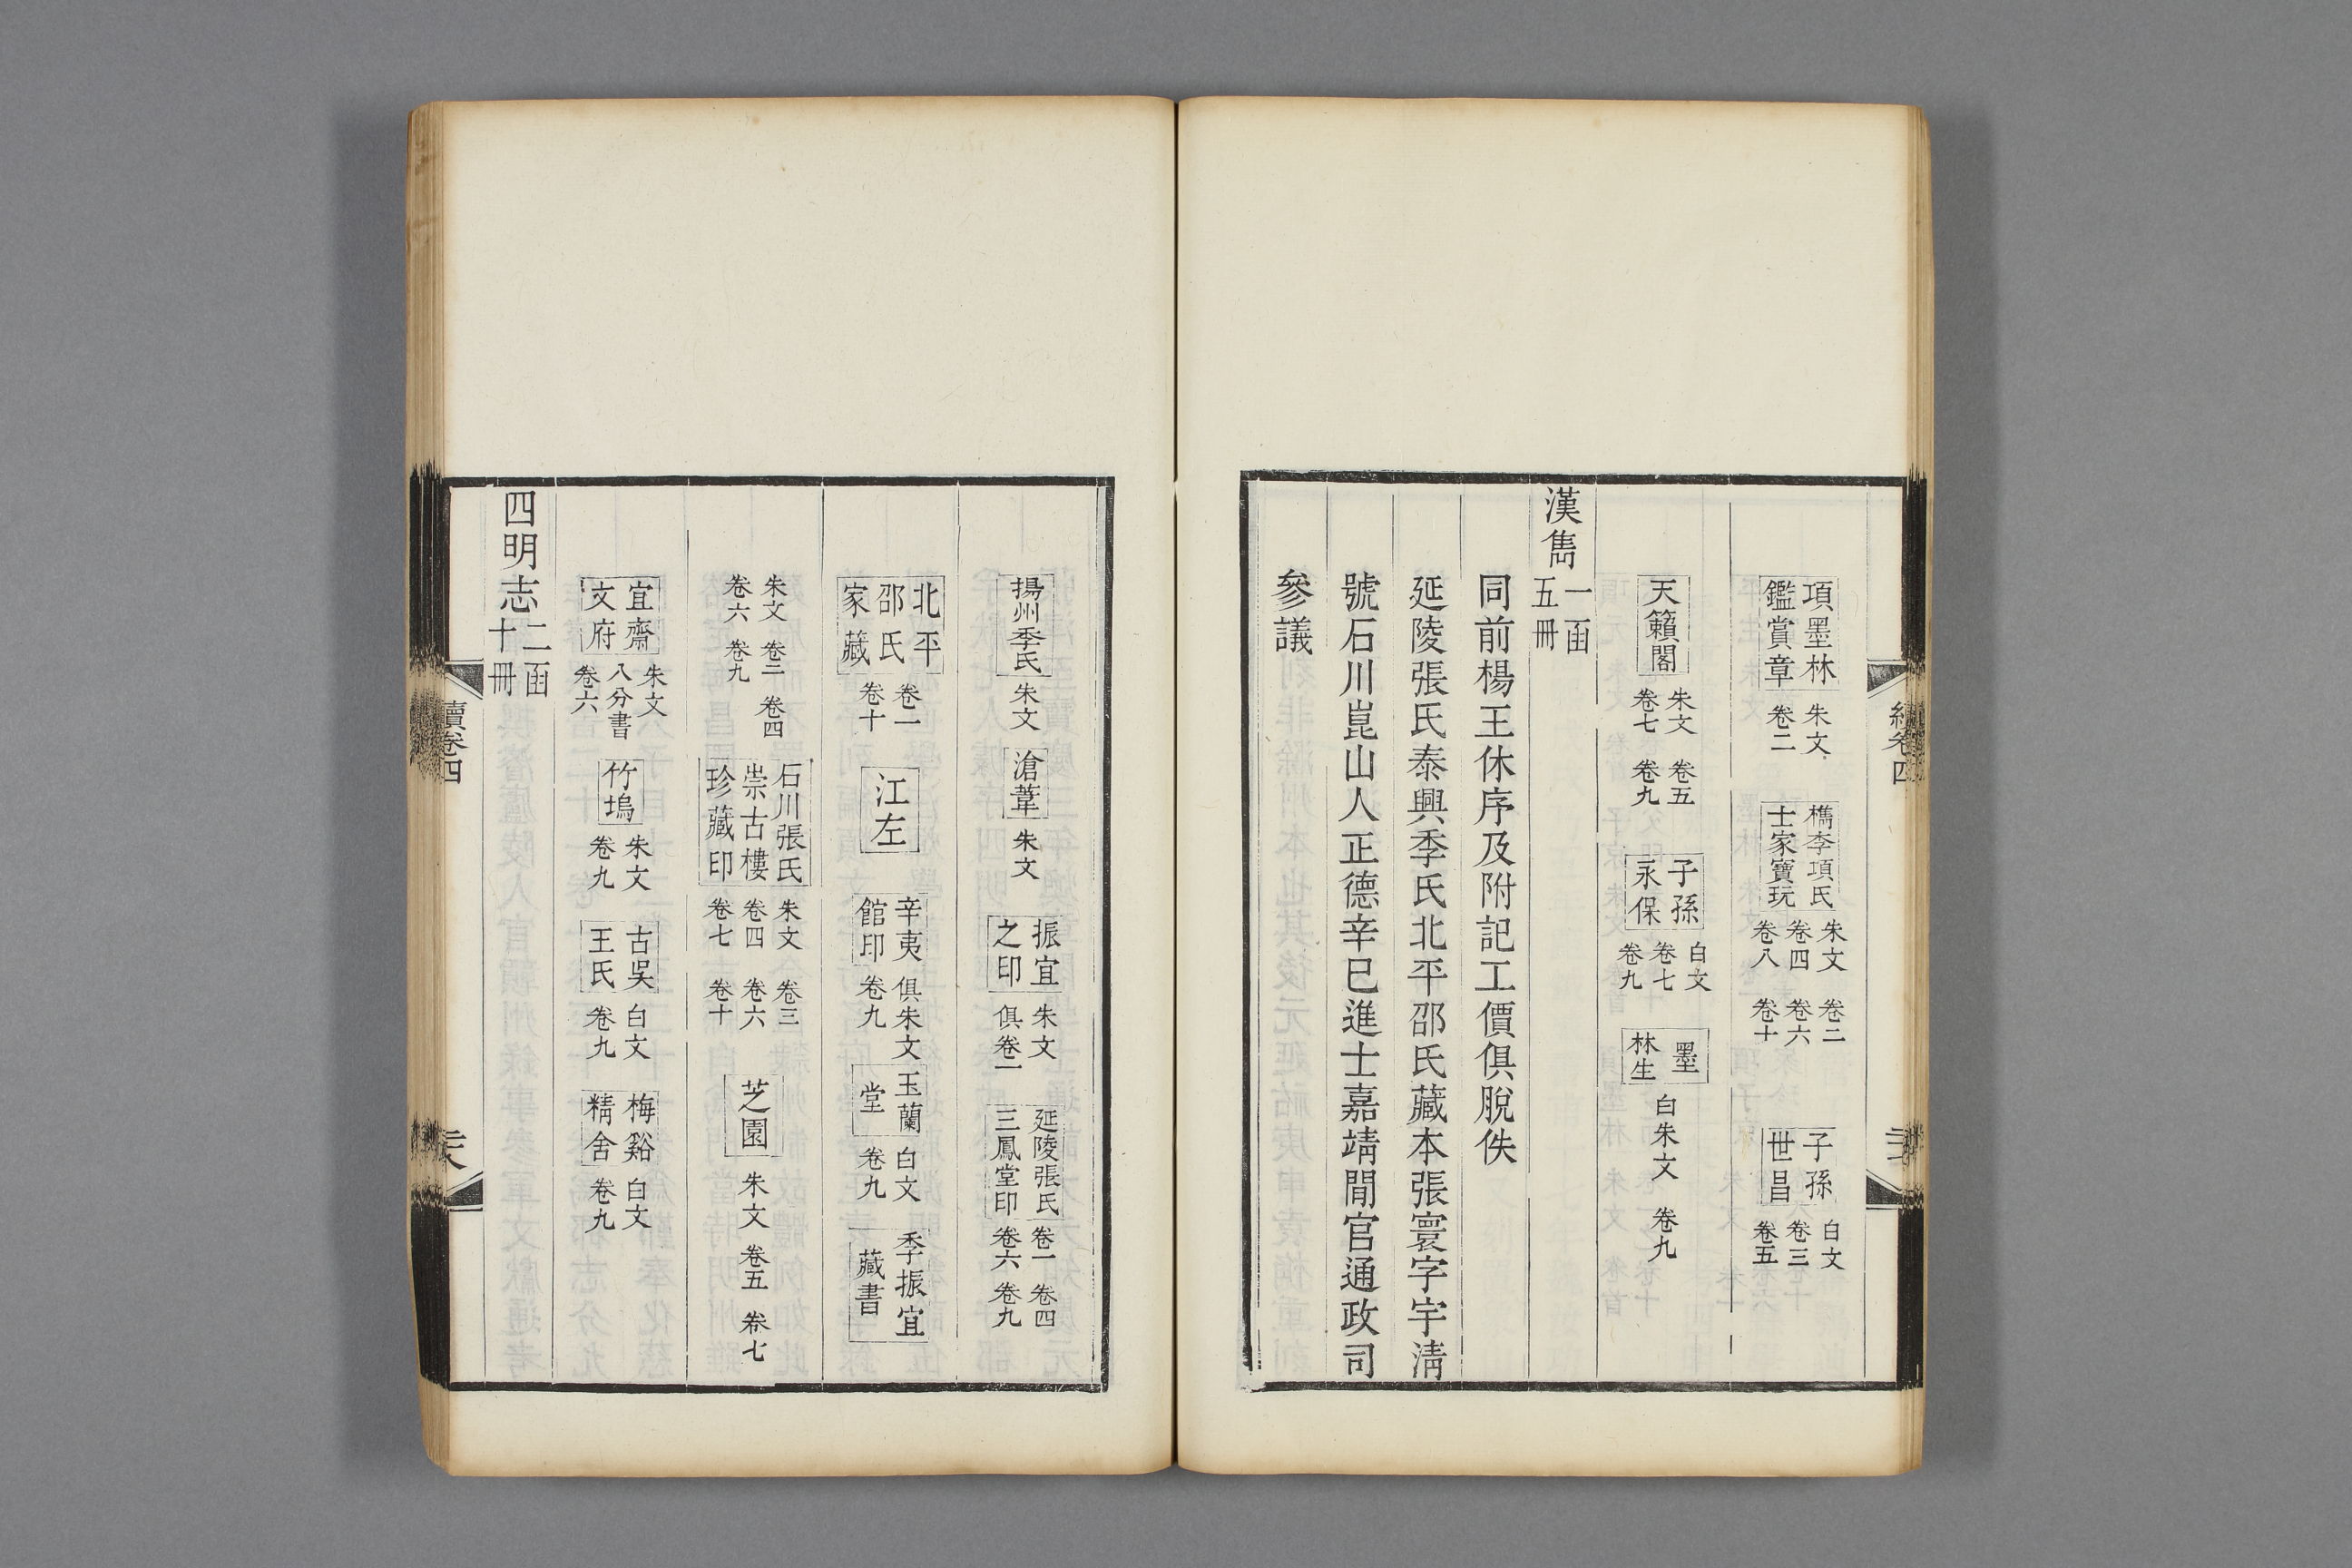 項墨林
鑑賞章
朱文
卷二
檇李項氏
士家寶玩
朱文 卷二
卷四 卷六
卷八 卷十
子孫
世昌
白文
卷三
卷五
天籟閣
朱文 卷五
卷七 卷九
子孫
永保
白文
卷七
卷九
墨
林生
白朱文 卷九
漢雋
一函
五冊
同前楊王休序及附記工價俱脫佚
延陵張氏泰興季氏北平邵氏藏本張寰字宇淸
號石川崑山人正德辛巳進士嘉靖閒官通政司
參議
揚州季氏
朱文
滄葦
朱文
振宜
之印
朱文
俱卷一
延陵張氏
三鳳堂印
卷一 卷四
卷六 卷九
北平
邵氏
家藏
卷一
卷十
江左
辛夷
館印
俱朱文
卷九
玉蘭
堂
白文
卷九
季振宜
藏書
朱文 卷三 卷四
卷六 卷九
石川張氏
崇古樓
珍藏印
朱文 卷三
卷四 卷六
卷七 卷十
芝園
朱文 卷五 卷七
宜齋
文府
朱文
八分書
卷六
竹塢
朱文
卷九
古吳
王氏
白文
卷九
梅谿
精舍
白文
卷九
四明志
二函
十冊
續卷四